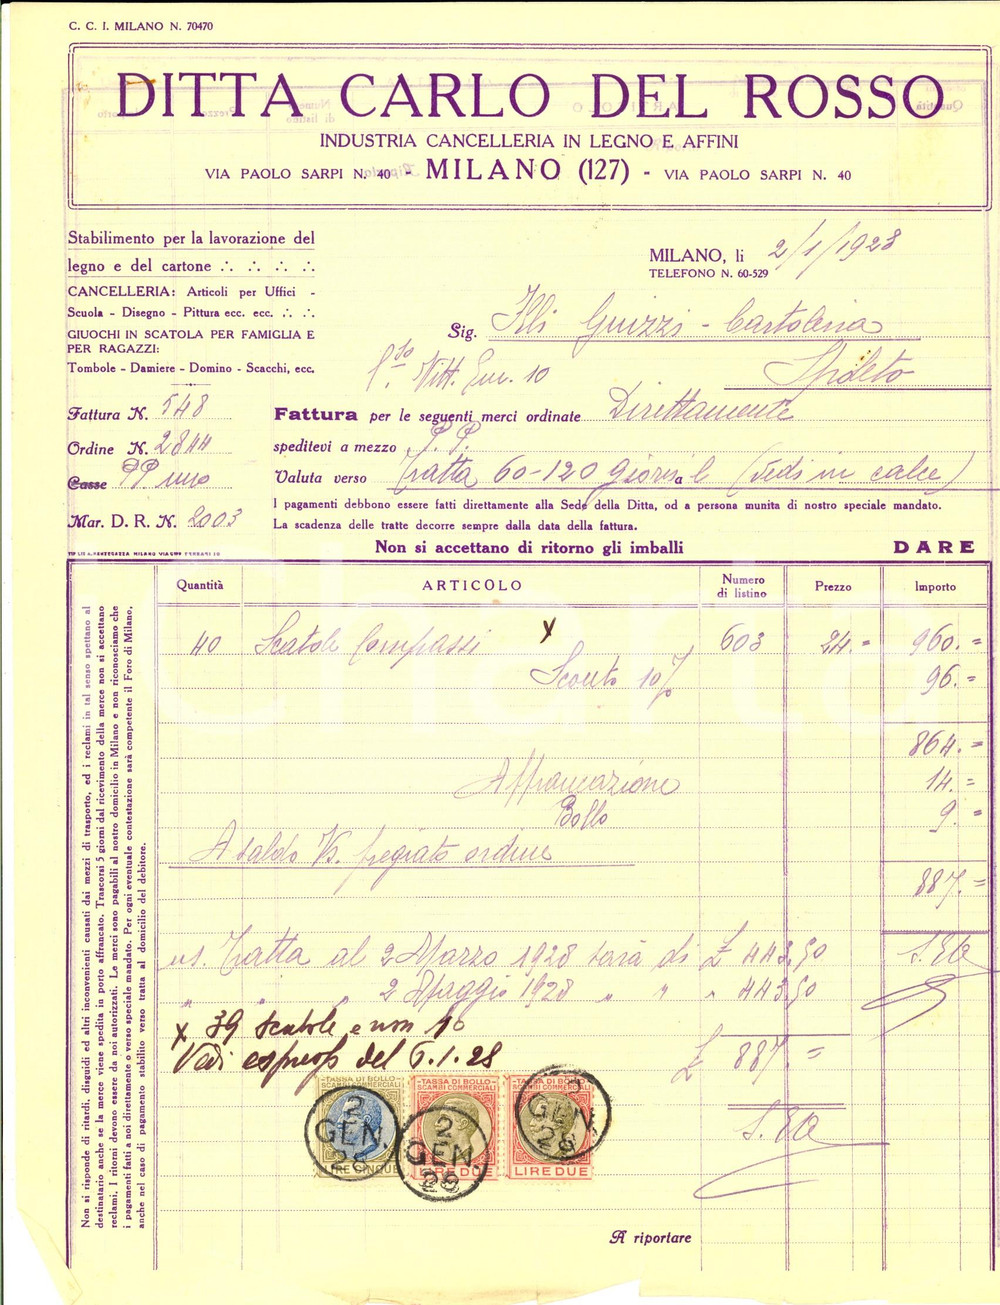 C. C. I. MILANO N. 70470
DITTA CARLO DEL ROSSO
INDUSTRIA CANCELLERIA IN LEGNO E AFFINI
VIA PAOLO SARPI N. 40 - MILANO (127) - VIA PAOLO SARPI N. 40
Stabilimento per la lavorazione del
legno e del cartone ∴ ∴ ∴ ∴
CANCELLERIA: Articoli per Uffici -
Scuola - Disegno - Pittura ecc. ecc. ∴ ∴
GIUOCHI IN SCATOLA PER FAMIGLIA E
PER RAGAZZI:
Tombole - Damiere - Domino - Scacchi, ecc.
MILANO, li 2/1/1928
TELEFONO N. 60-529
Sig. Flli Guizzi - Cartoleria
Vitt. Em. 10 Spoleto
Fattura N. 548
Ordine N. 2844
Casse PP uno
Mar. D. R. N. 2003
Fattura per le seguenti merci ordinate Direttamente
speditevi a mezzo P.P.
Valuta verso Tratta 60-120 giorni (Vedi in calce)
I pagamenti debbono essere fatti direttamente alla Sede della Ditta, od a persona munita di nostro speciale mandato.
La scadenza delle tratte decorre sempre dalla data della fattura.
Non si accettano di ritorno gli imballi
DARE
Quantità ARTICOLO Numero di listino Prezzo Importo
40 Scatole Compassi x 603 24.= 960.=
Sconto 10% 96.=
864.=
Affrancazione 14.=
Bollo 9.=
A saldo Vs. pregiato ordine
887.=
ns. Tratta al 2 Marzo 1928 sarà di £ 443,50
S.E&O
" " 2 Maggio 1928 " " " 443,50
x 39 scatole e non 40
Vedi espresso del 6.1.28
£ 887.=
S.E&O
TASSA DI BOLLO
SCAMBI COMMERCIALI
LIRE CINQUE
TASSA DI BOLLO
SCAMBI COMMERCIALI
LIRE DUE
TASSA DI BOLLO
SCAMBI COMMERCIALI
LIRE DUE
2
GEN.
28
2
GEN.
28
2
GEN.
28
A riportare
Non si risponde di ritardi, disguidi ed altri inconvenienti causati dai mezzi di trasporto, ed i reclami in tal senso spettano al
destinatario anche se la merce viene spedita in porto affrancato. Trascorsi 5 giorni dal ricevimento della merce non si accettano
reclami. I ritorni devono essere da noi autorizzati. Le merci sono pagabili al nostro domicilio in Milano e non riconosciamo che
i pagamenti fatti a noi direttamente o verso speciale mandato. Per ogni eventuale contestazione sarà competente il Foro di Milano,
anche nel caso di pagamento stabilito verso tratta al domicilio del debitore.